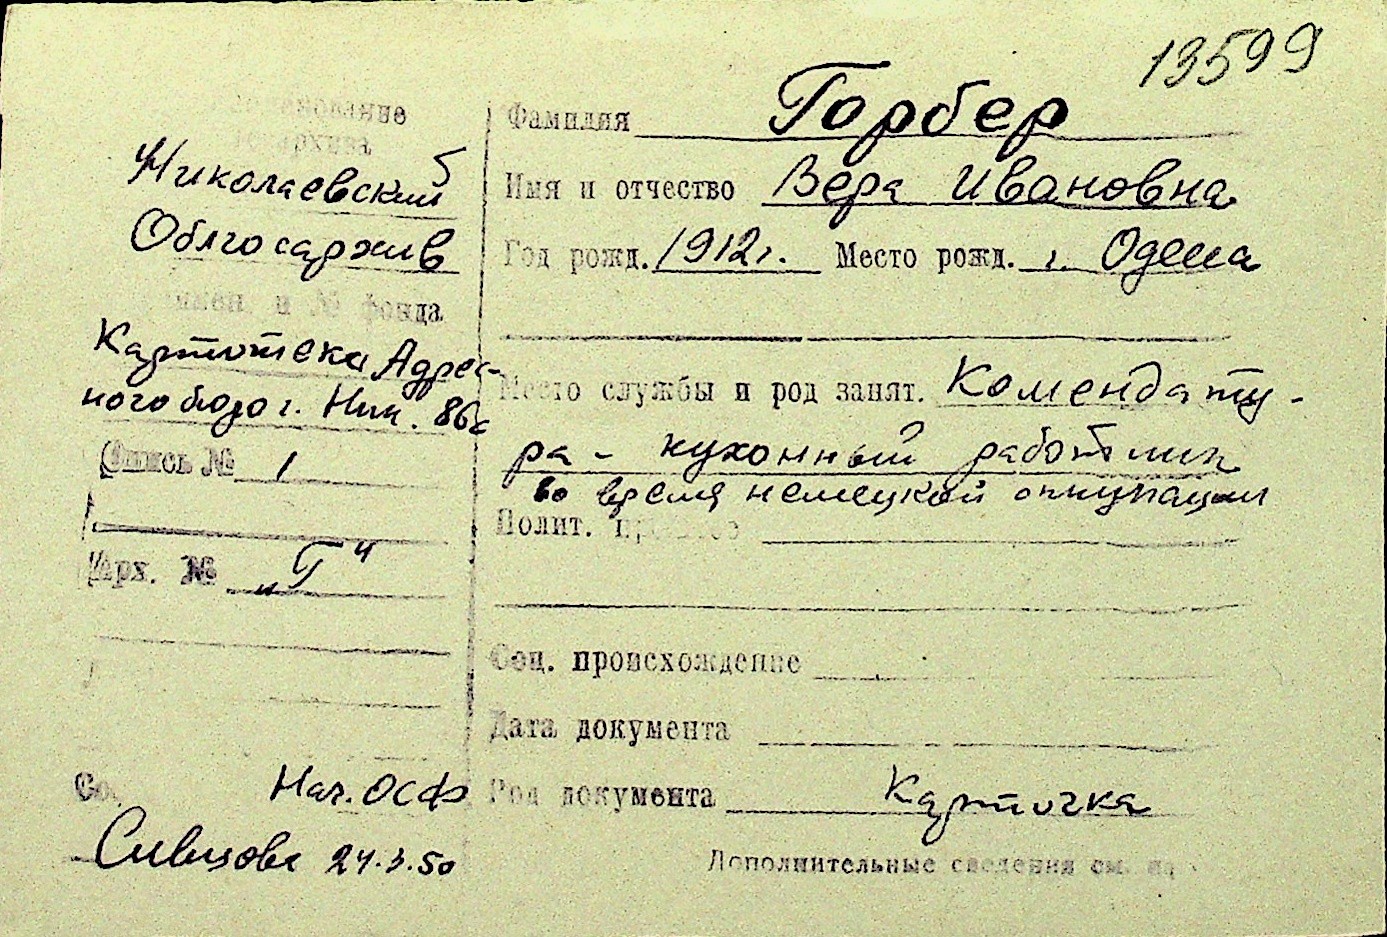 13599
Николаевский
Облгосархив
и № фонда
Картотека Адрес-
ного бюро г. Ник.
Опись № 1
Арх. № „Г"
Нач. ОСФ
24.3.50
Фамилия Горбер
Имя и отчество Вера Ивановна
Год рожд. 1912 г. Место рожд. г. Одесса
Место службы и род занят. Комендату-
ра - кухонный работник
во время немецкой оккупации
Полит.
Соц. происхождение
Дата документа
Род документа Карточка
Дополнительные сведения см. на